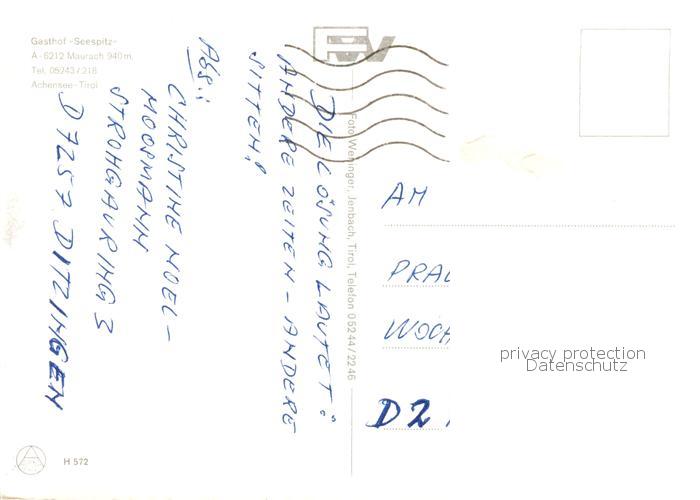 Gasthof »Seespitz«
A-6212 Maurach 940 m,
Tel. 05243/218
Achensee-Tirol
DIE LÖSUNG LAUTET:
ANDERE ZEITEN - ANDERE
SITTEN!
Abs.:
CHRISTINE NOEL-
MOOSMANN
STROHGÄURING 3
D 7257 DITZINGEN
Foto Weninger, Jenbach, Tirol, Telefon 05244/2246
AM
PRAL
WOCH
D2
privacy protection
Datenschutz
H 572